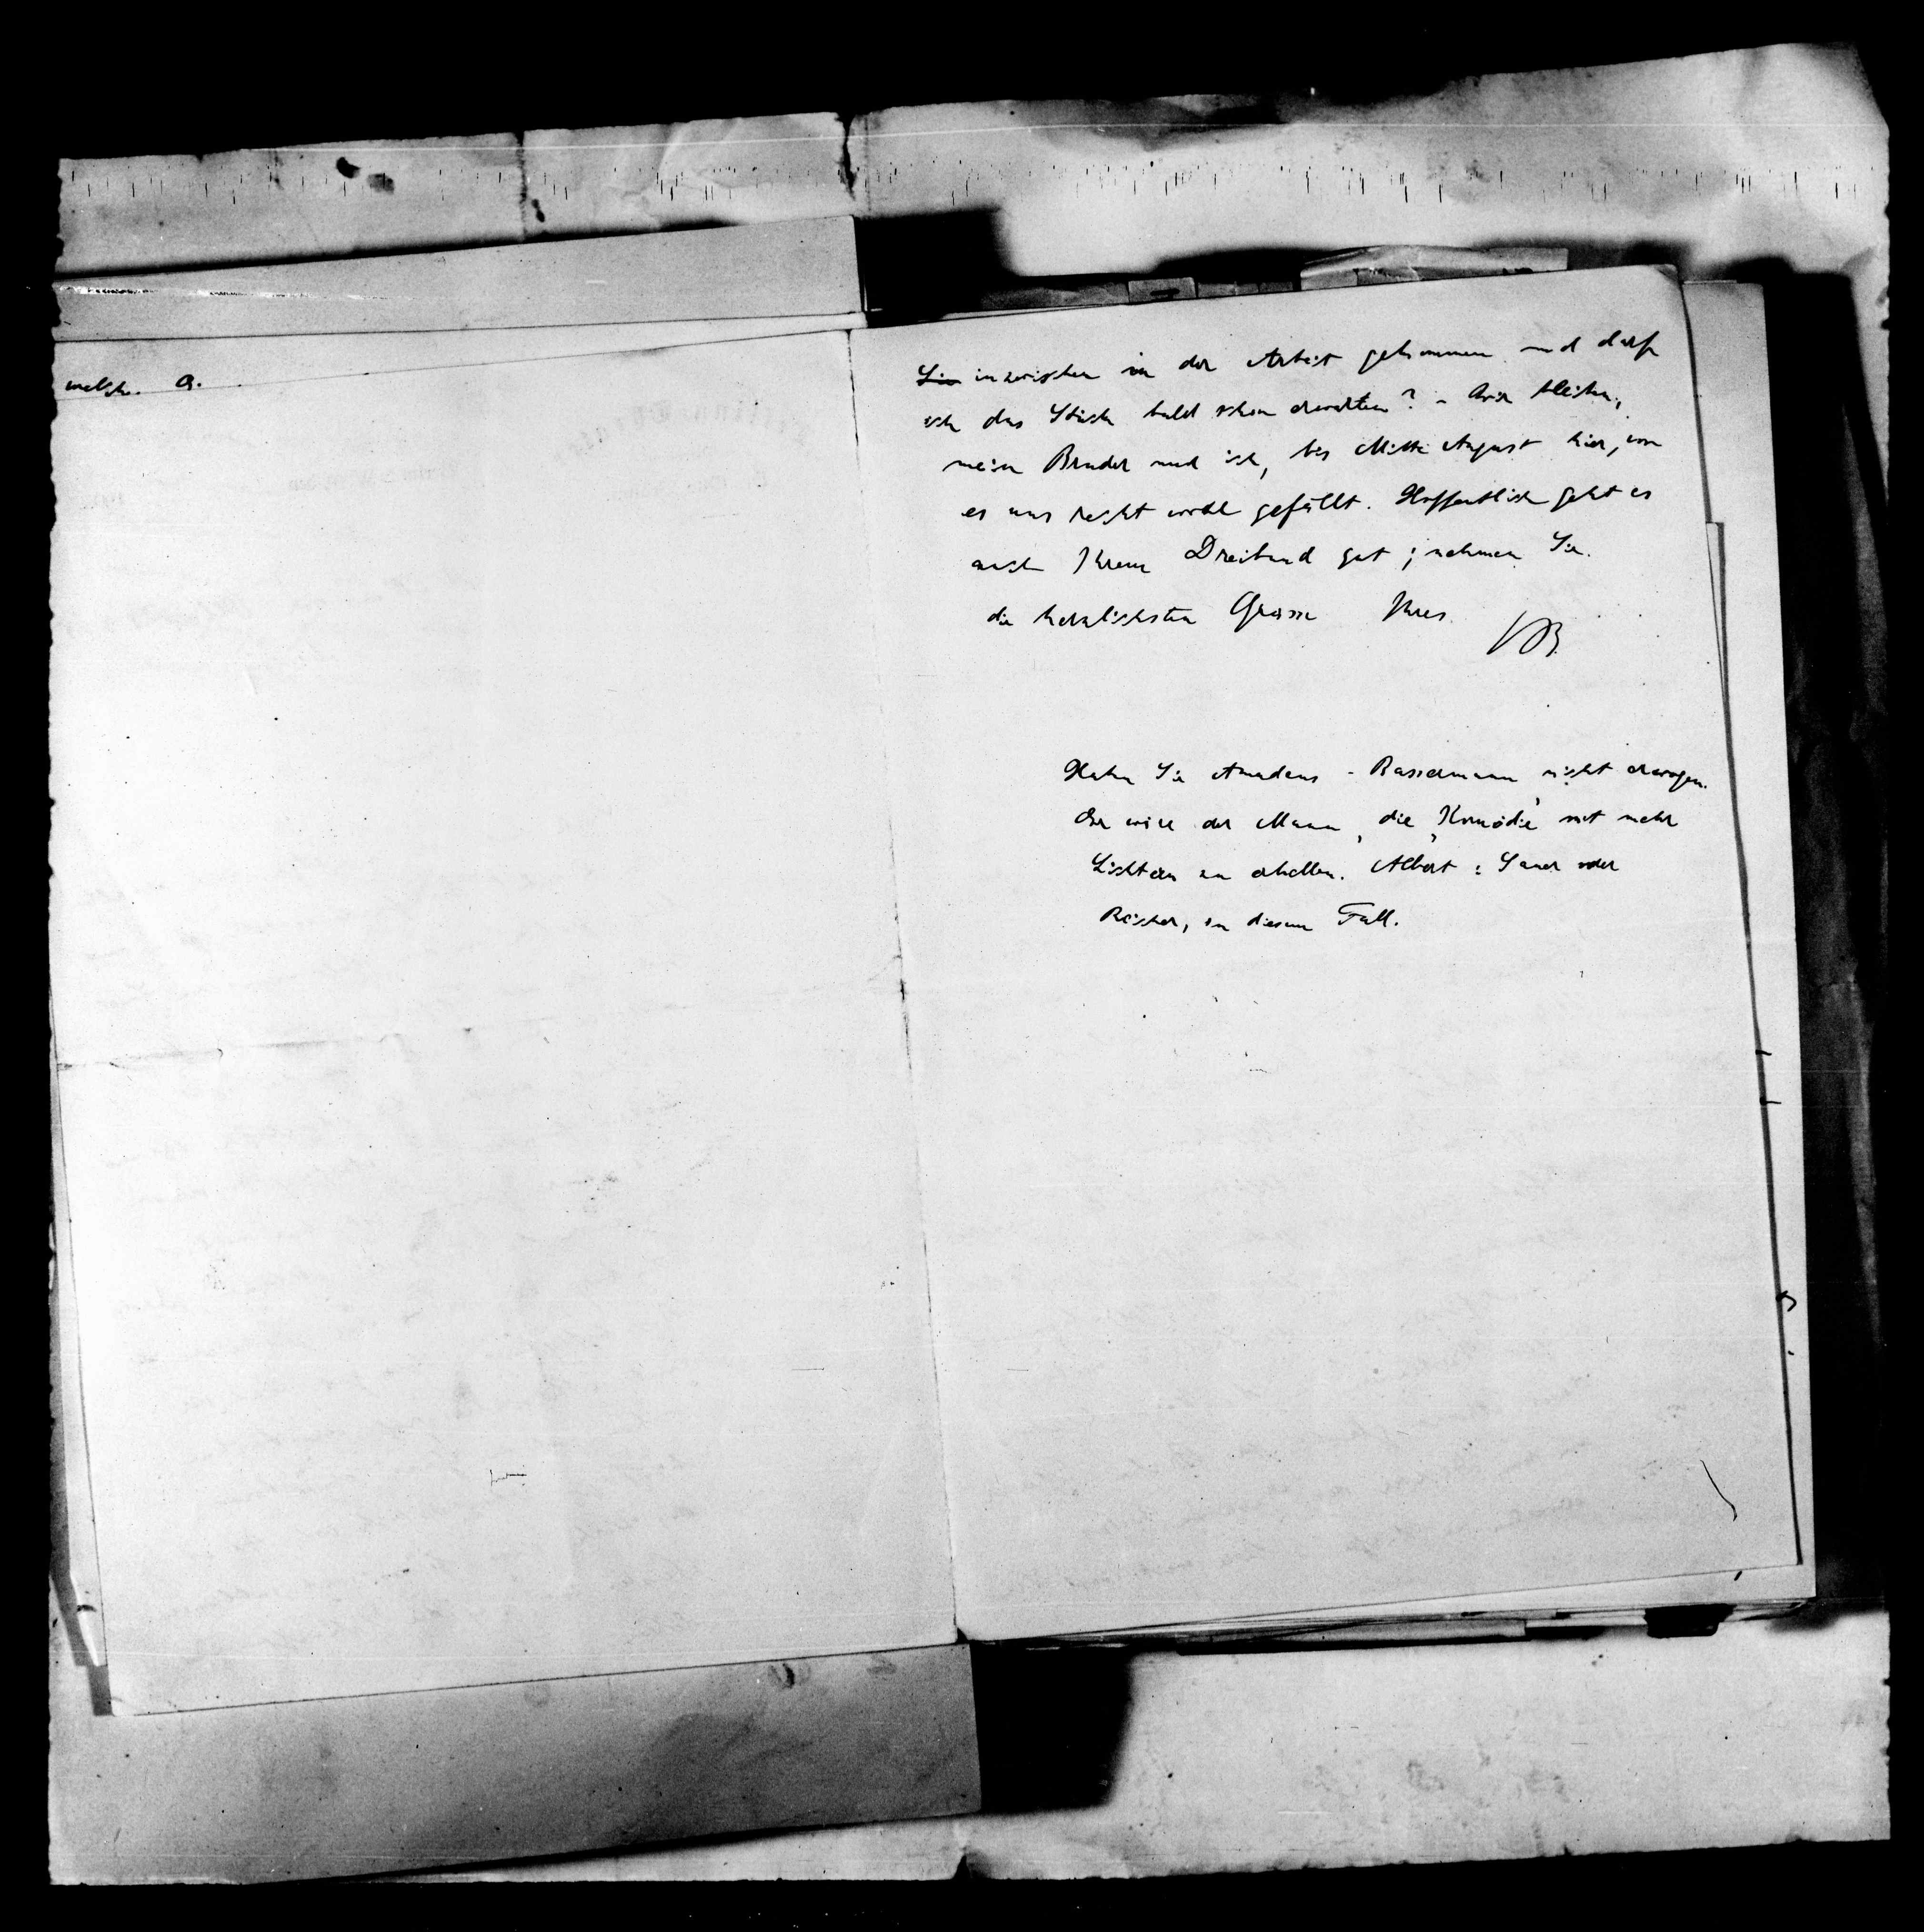 Sie inzwischen in der Arbeit gekommen und darf
ich das Stück bald schon erwarten? - Wir bleiben,
mein Bruder und ich, bis Mitte August hier, wo
es uns recht wohl gefällt. Hoffentlich geht es
auch Ihrem Dreibund gut; nehmen Sie
die herzlichsten Grüsse Ihres
Haben Sie Amadeus - Bassermann nicht erwogen.
Er wäre der Mann, die „Komödie" mit mehr
Lichtern zu erhellen. Albert: Sauer oder
Reicher, in diesem Fall.